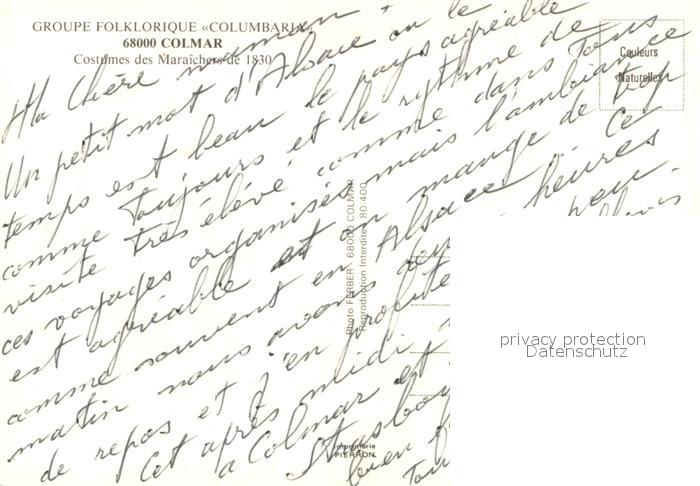 GROUPE FOLKLORIQUE «COLUMBARIA»
68000 COLMAR
Costumes des Maraîchers de 1830
Couleurs
Naturelles
Ma Chère maman
Un petit mot d'Alsace ou le
temps est beau le pays agréable
comme toujours et le rythme de
visite très élévé comme dans tous
ces voyages organisés mais l'ambiance
est agréable et on mange de trop
comme souvent en Alsace. Ce
matin nous avons heures
de repos et j'en profite peu
Cet après midi
a Colmar et
Strasbou
bien
Tou
Photo FERBER - 68000 COLMAR
Reproduction Interdite - 80 400
Imprimerie
PIERRON
privacy protection
Datenschutz